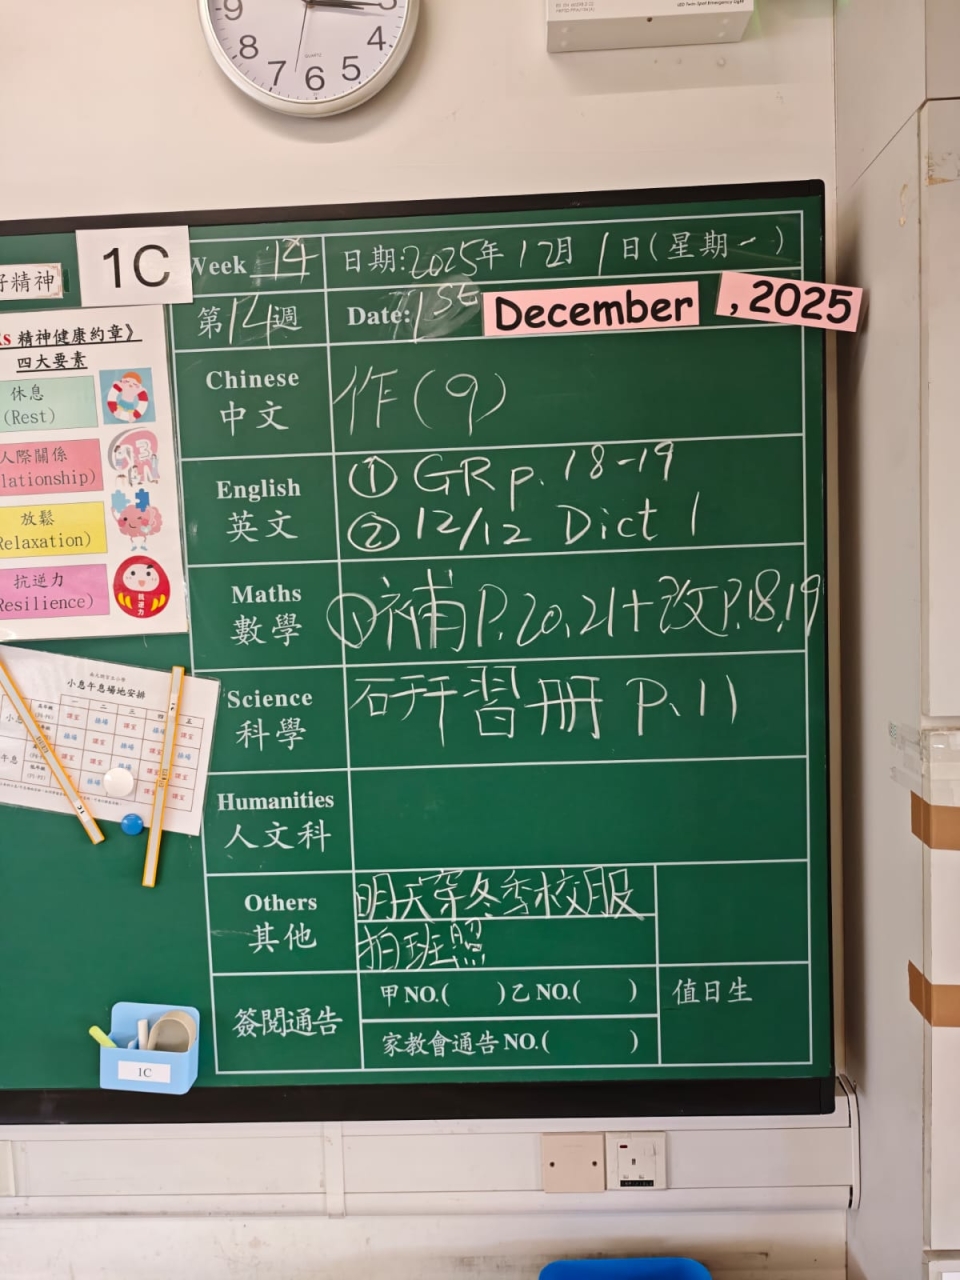 9 3
8 4
7 6 5
QUARTZ
LED Twin Spot Emergency Light
好精神
1C
Week 14 日期:2025年12月1日(星期一)
第14週 Date: 1st December , 2025
精神健康約章》
四大要素
休息
(Rest)
人際關係
lationship)
放鬆
Relaxation)
抗逆力
Resilience)
抗逆力
Chinese
中文
作(9)
English
英文
① GR p. 18-19
② 12/12 Dict 1
Maths
數學
①補P.20,21+改P.18,19
Science
科學
研習冊 P.11
Humanities
人文科
Others
其他
明天穿冬季校服
拍班照
簽閱通告
甲NO.( )乙NO.( )
家教會通告NO.( )
值日生
小息午息場地安排
一 二 三 四 五
1C